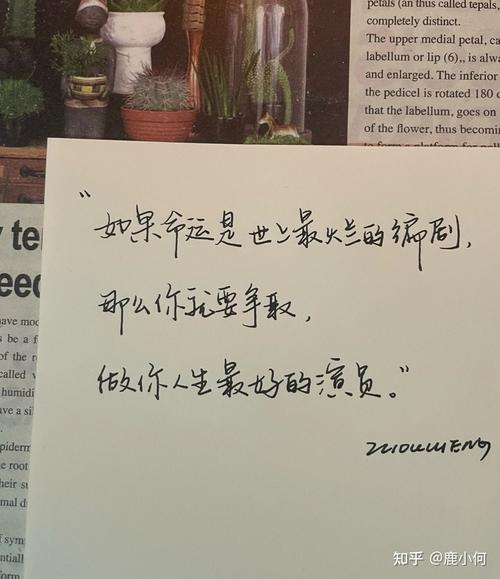 petals (an thus called tepals,
completely distinct.
The upper medial petal, ca
labellum or lip (6),, is alwa
and enlarged. The inferior
the pedicel is rotated 180 d
that the labellum, goes on
of the flower, thus becomin
"如果命运是世上最烂的编剧,
那么你就要争取,
做你人生最好的演员。"
y te
eed
have mod
s be a f
of the r
called v
humidi
ave a si
piderm
e root
heir su
mal d
f sym
ntiall
form
知乎 @鹿小何